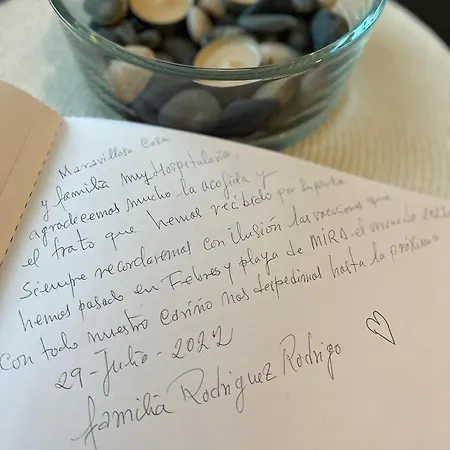 Maravillosa Casa
y familia muy Hospitalaria,
agradecemos mucho la acojida y
el trato que hemos recibido por su parte
Siempre recordaremos con ilusión las vacaciones que
hemos pasado en Febres y playa de MIRA. el verano de 2022
Con todo nuestro Cariño nos despedimos hasta la próxima
29-Julio-2022
familia Rodriguez Rodrigo